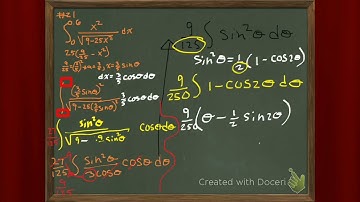 #21
∫₀^0.6 x²/√(9-25x²) dx
25(9/25 - x²)
9/25 = a², a = 3/5, x = 3/5 sinθ
dx = 3/5 cosθdθ
(3/5 sinθ)²/√(9-25(3/5 sinθ)²) 3/5 cosθdθ
27/125 ∫ sin²θ/√(9-9sin²θ) cosθdθ
27/125 ∫ sin²θ/3cosθ cosθdθ
9/125
9/125 ∫ sin²θ dθ
sin²θ = 1/2 (1-cos2θ)
9/250 ∫ 1-cos2θ dθ
9/250 (θ - 1/2 sin2θ)
Created with Doceri